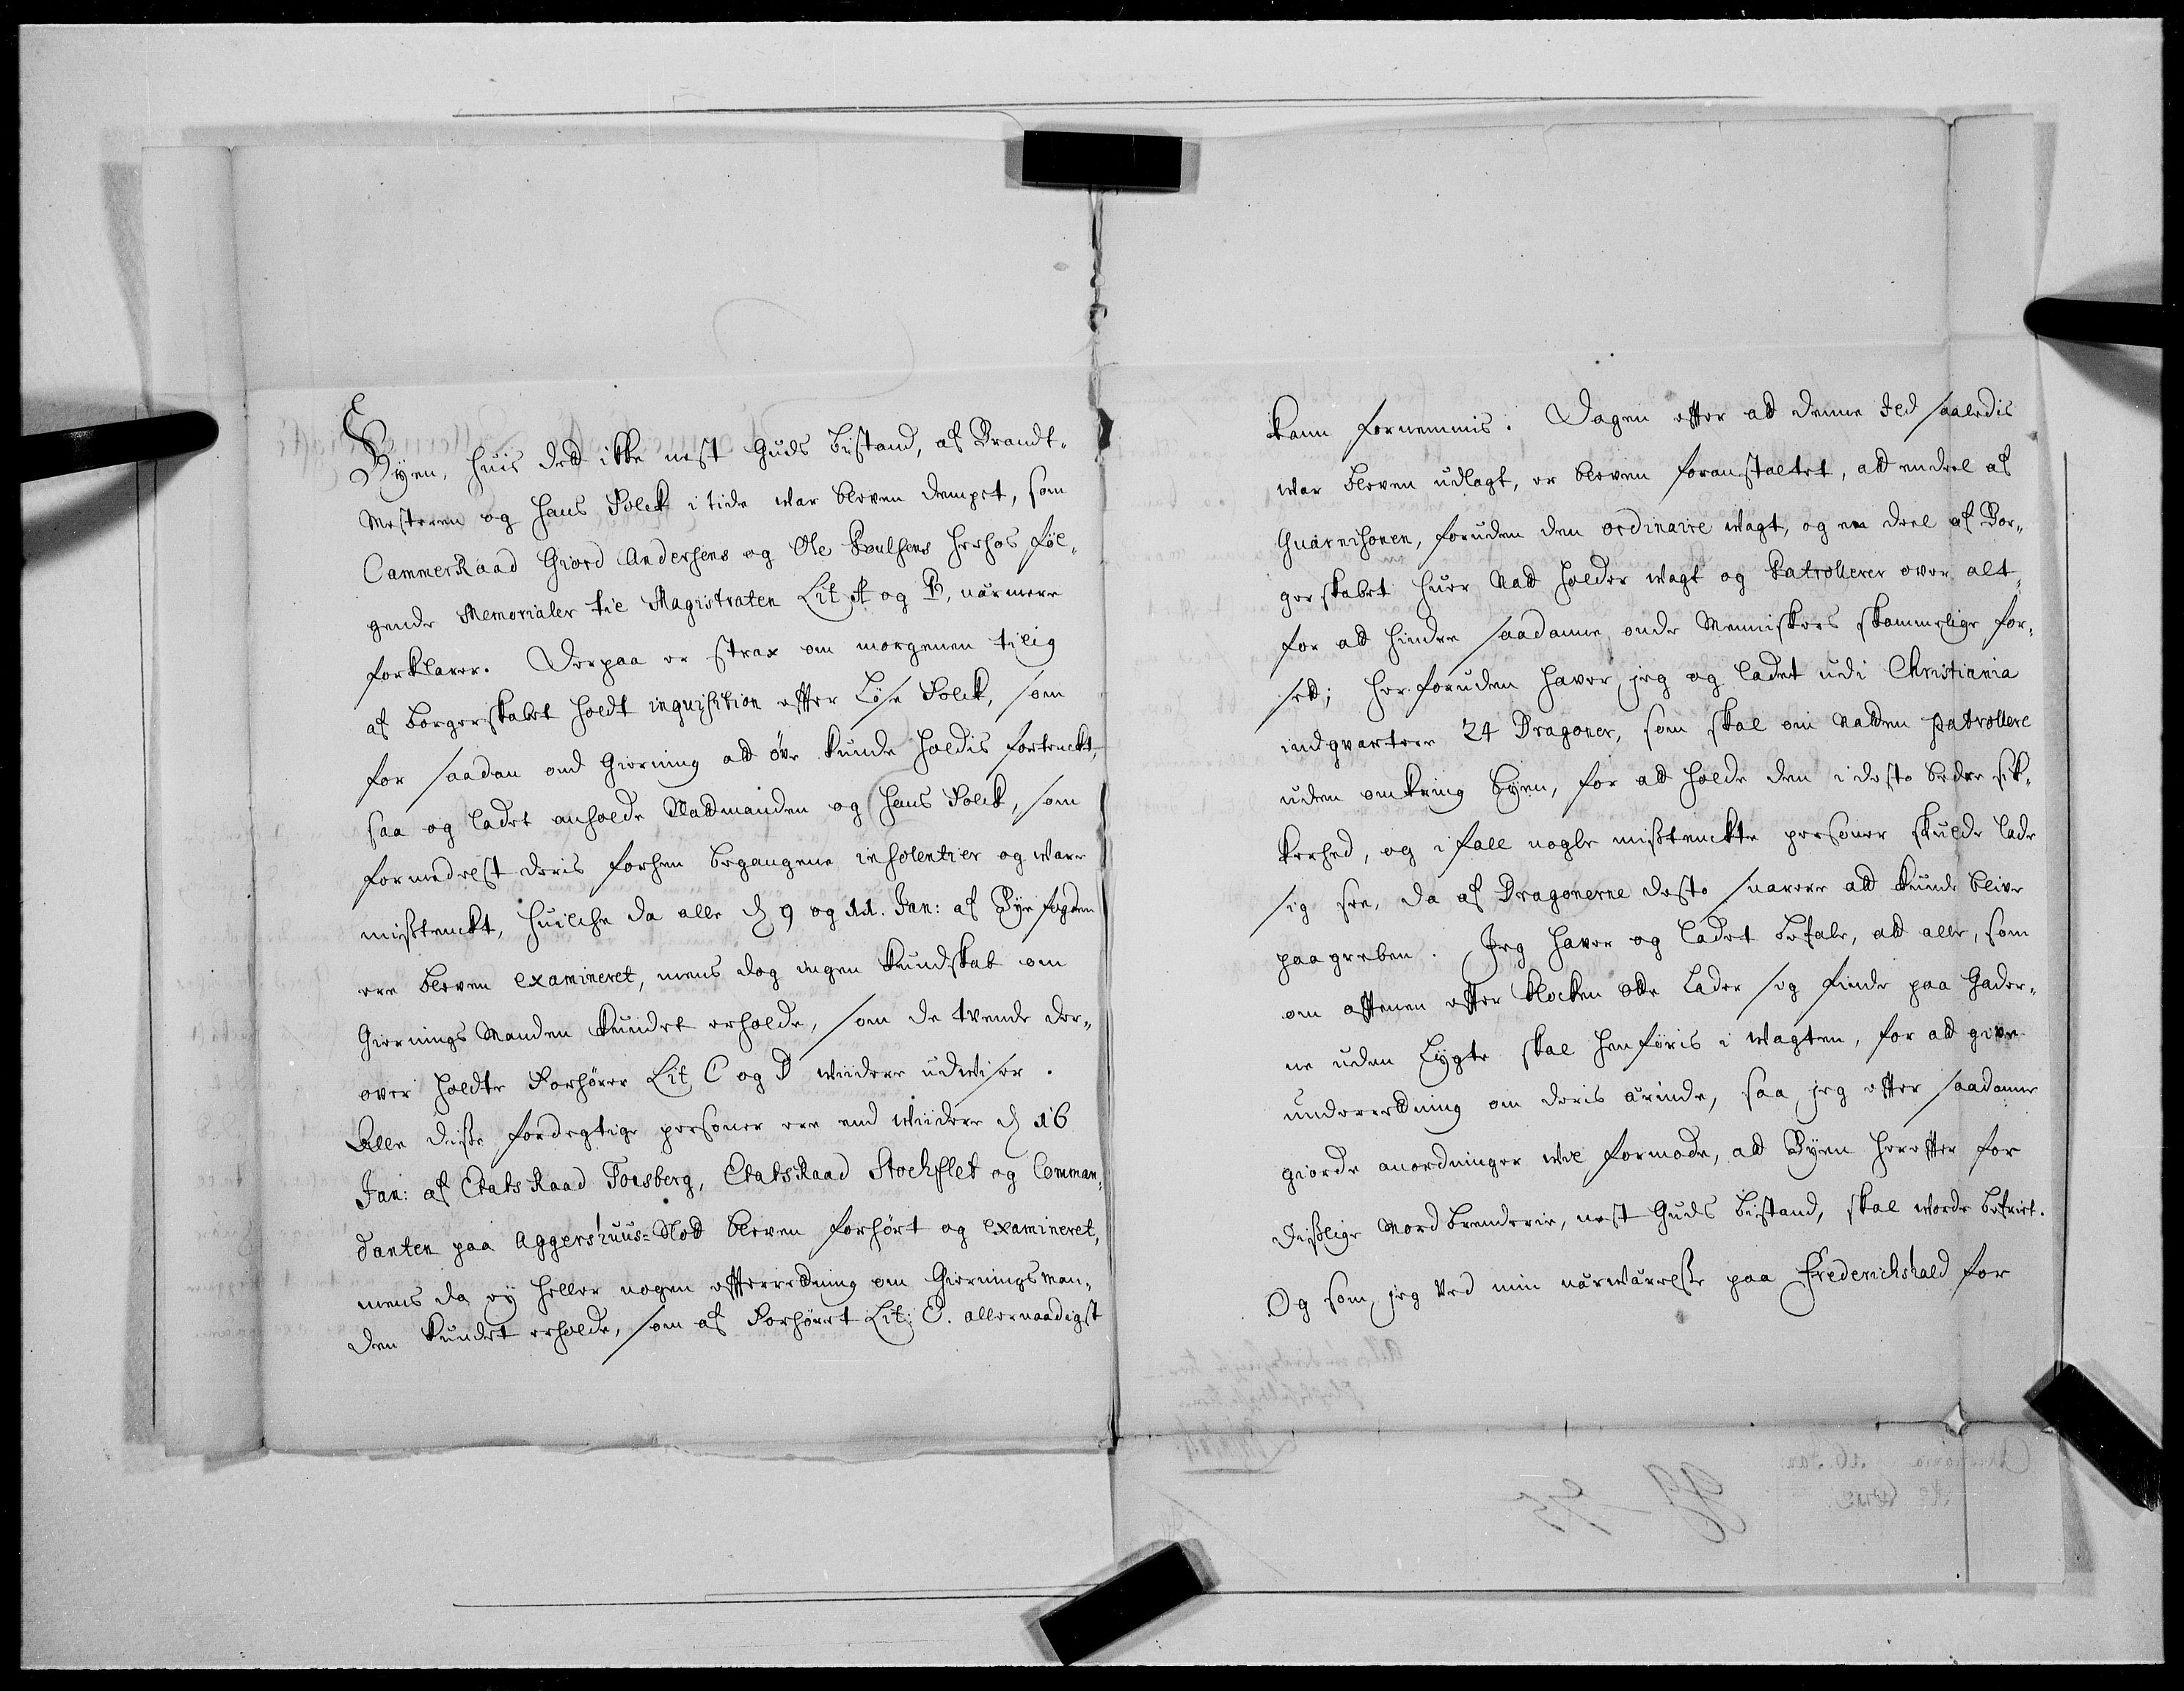 Byen, huis det ikke nest Guds bistand, af Brandt-
Mesteren og hans Folck i tide war bleven dempet, som
CammerRaad Giord Andersens og Ole Poulsens herhos føl-
gende Memorialer til Magistraten Lit A og B, nærmere
forklarer. Derpaa er strax om morgenen tilig
af borgerskabet holdt inquisition effter Løse Folck, som
for saadan ond Gierning at øve kunde holdis fortenckt,
saa og ladet anholde Natmanden og hans Folck, som
formedelst deris forhen begangene insolentier og ware
mistenckt, huilche da alle d 9 og 11. Jan: af Byefogden
ere bleven examineret, mens dog ingen kundskab om
Giernings Manden kundet erholde, som de tvende der-
over holdte Forhører Lit C og D widere udwiser.
Alle disse fordegtige personer ere end widere d 16
Jan: af EtatsRaad Tonsberg, EtatsRaad Stochflet og Comman-
danten paa Aggershuus-Slot bleven forhørt og examineret,
mens da ey heller nogen effterretning om Gierningsman-
den kundet erholde, som af Forhøret Lit: E. allernaadigst
kann fornemmis. Dagen effter at denne Ild saaledis
war bleven udlagt, er bleven foranstaltet, at en deel af
Guarnisonen, foruden den ordinaire wagt, og en deel af Bor-
gerskabet huer Nat holder wagt og Patrollerer over alt
for at hindre saadanne onde Menniskers skammelige for-
set; her foruden haver jeg og ladet udi Christiania
indqvartere 24 Dragoner, som skal om Natten patrollere
uden omkring Byen, for at holde den i desto bedre sik-
kerhed, og i fall nogle mistenckte personer skulde lade
sig see, da af Dragonerne desto snarere at kunde blive
paagreben. Jeg haver og ladet befale, at alle, som
om afftenen effter klocken otte lader sig finde paa Gader-
ne uden Lygte skal henføris i wagten, for at give
underretning om deris ærinde, saa jeg effter saadanne
giorde anordninger wil formode, at Byen hereffter for
dislige Mordbrenderie, nest Guds bistand, skal worde befriet.
Og som jeg ved min nærwærelse paa Frederichshald for